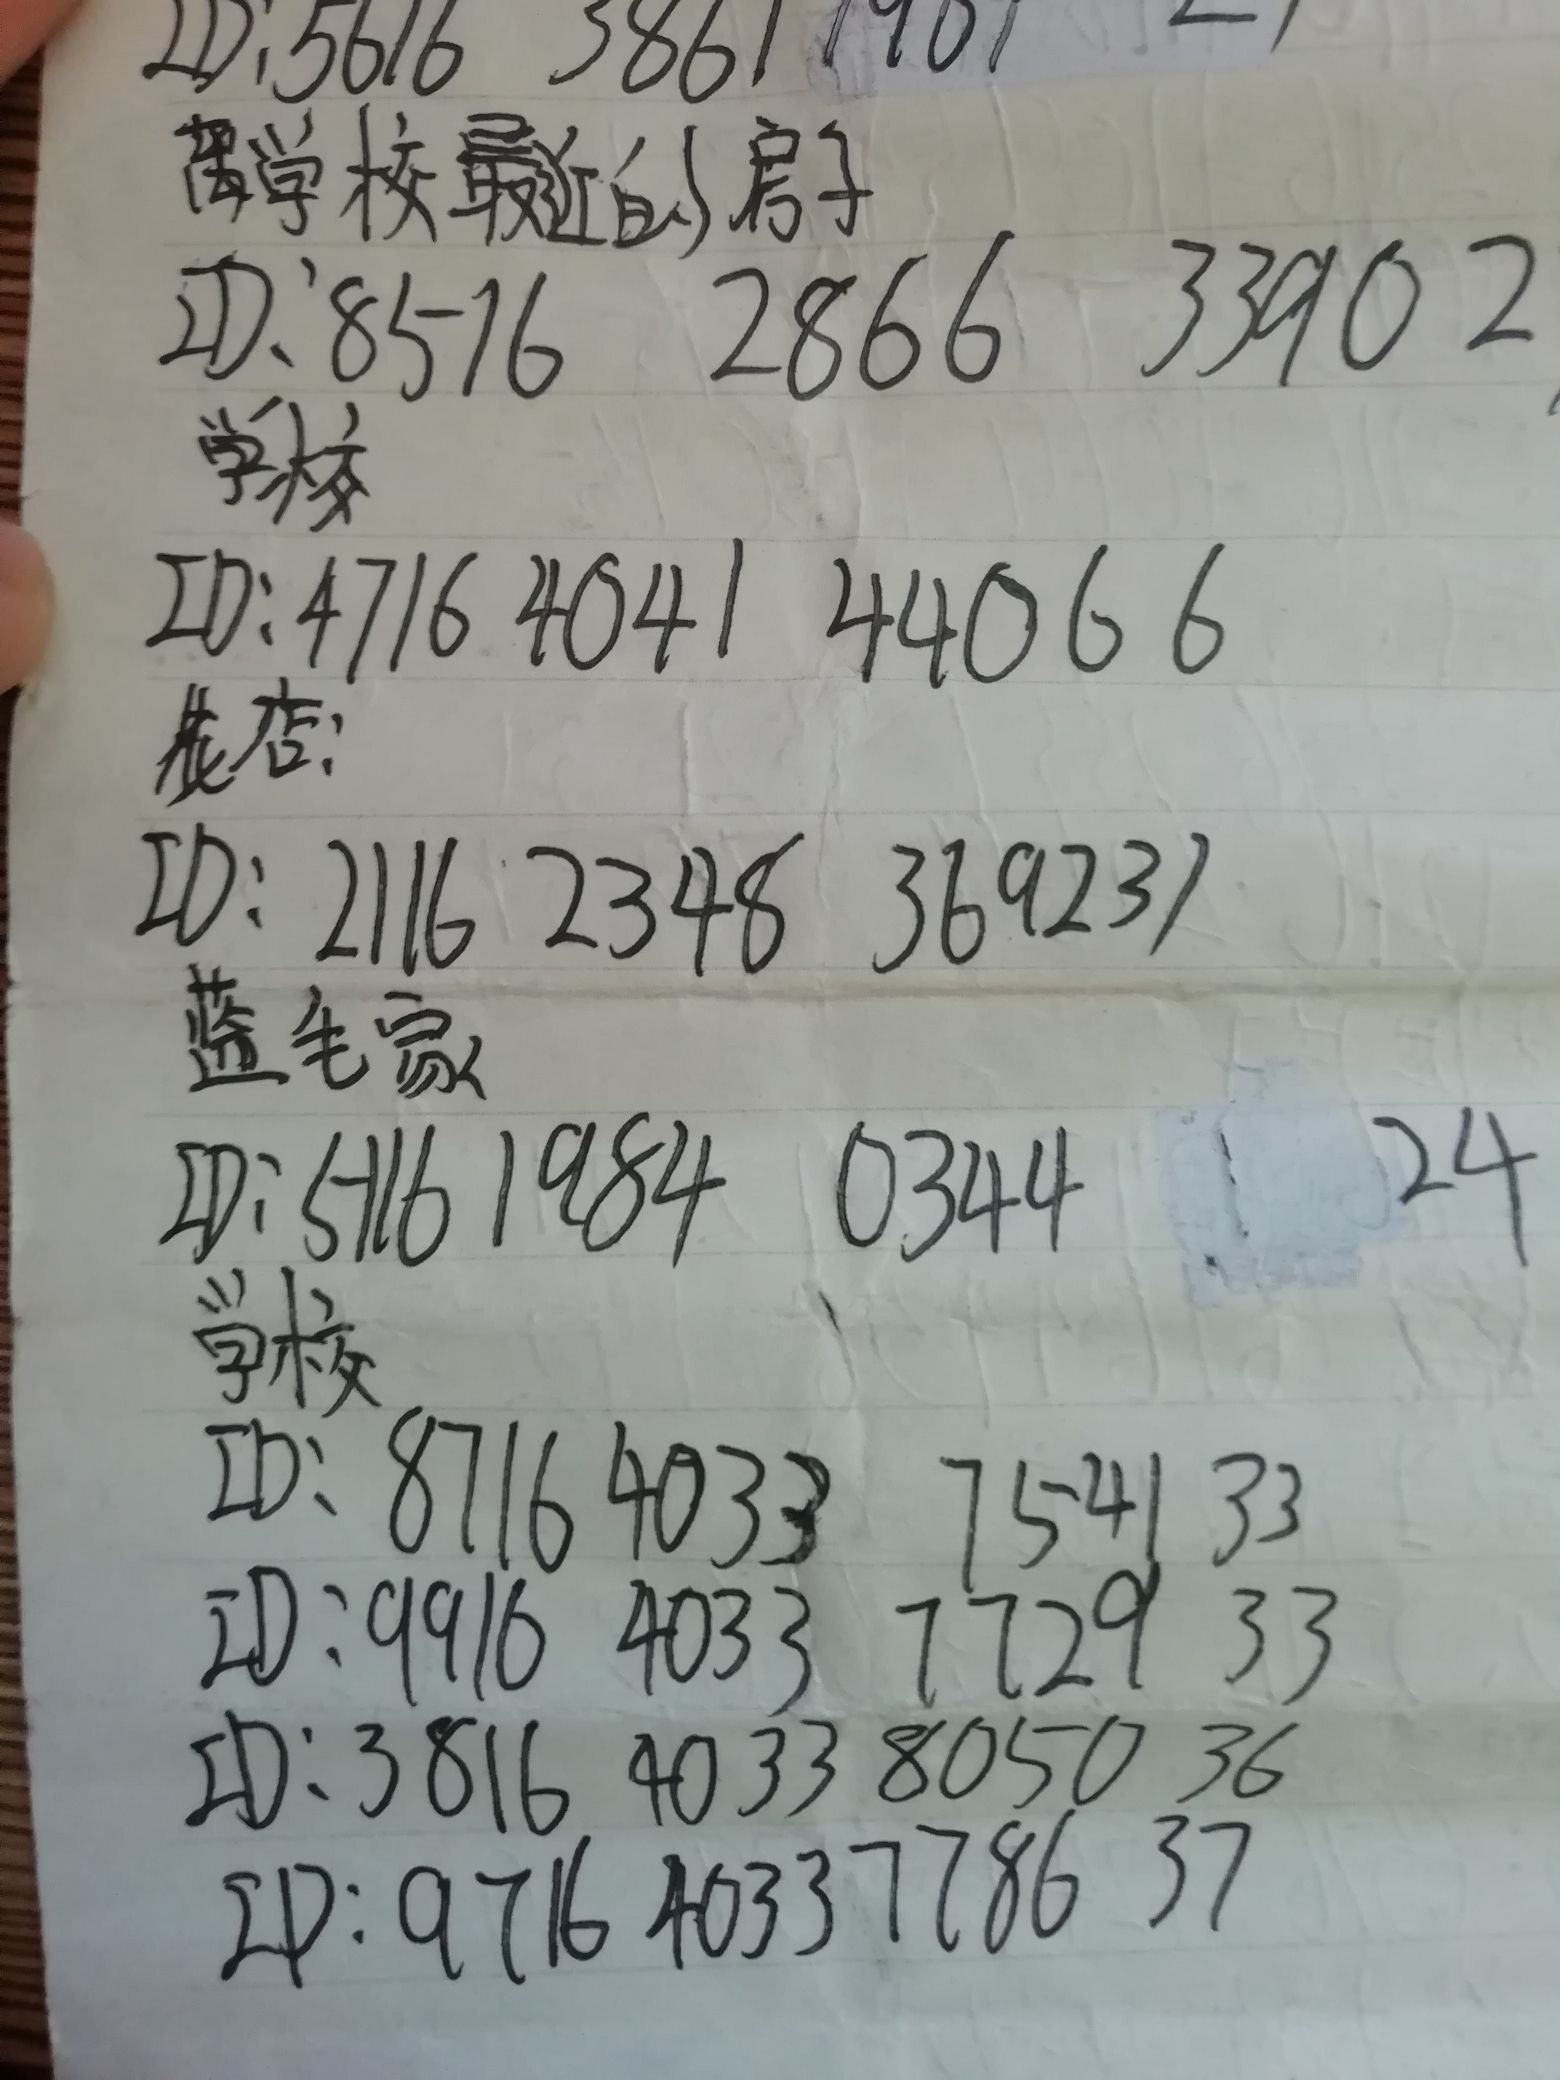 ID:5616 3861 1901
学校最近的房子
ID:8516 2866 33902
学校
ID:4716 4041 44066
花店:
ID: 2116 2348 369231
蓝毛家
ID:5116 1984 0344 1 24
学校
ID: 8716 4033 7541 33
ID:9916 4033 7729 33
ID:3816 4033 8050 36
ID:9716 4033 7786 37